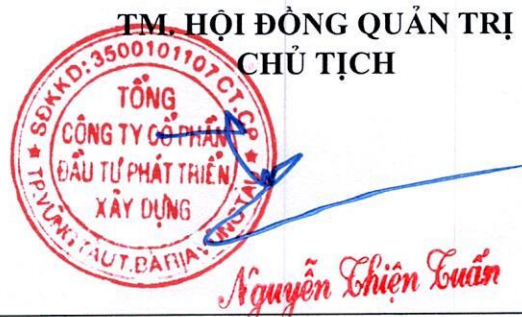 TM. HỘI ĐỒNG QUẢN TRỊ
CHỦ TỊCH
SĐKKD: 3500101107 CT.C.P
TỔNG
CÔNG TY CỔ PHẦN
ĐẦU TƯ PHÁT TRIỂN
XÂY DỰNG
TP.VŨNG TÀU T.BÀ RỊA VŨNG TÀU
Nguyễn Thiện Tuấn